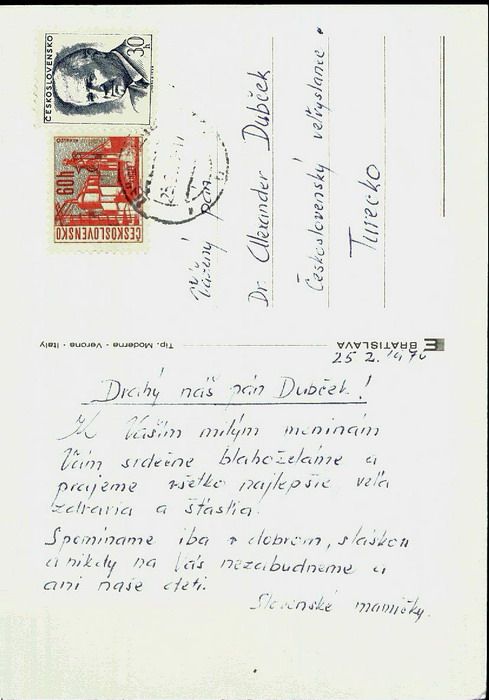 ČESKOSLOVENSKO
30h
60h
ČESKOSLOVENSKO
Vážený pán
Dr. Alexander Dubček
Československý veľvyslanec
Turecko
Tip. Moderna - Verona - Italy
BRATISLAVA
25 2. 1970
Drahý náš pán Dubček!
K Vašim milým meninám
Vám srdečne blahoželáme a
prajeme všetko najlepšie veľa
zdravia a šťastia.
Spomíname iba v dobrom, s láskou
a nikdy na Vás nezabudneme a
ani naše deti.
Slovenské mamičky.